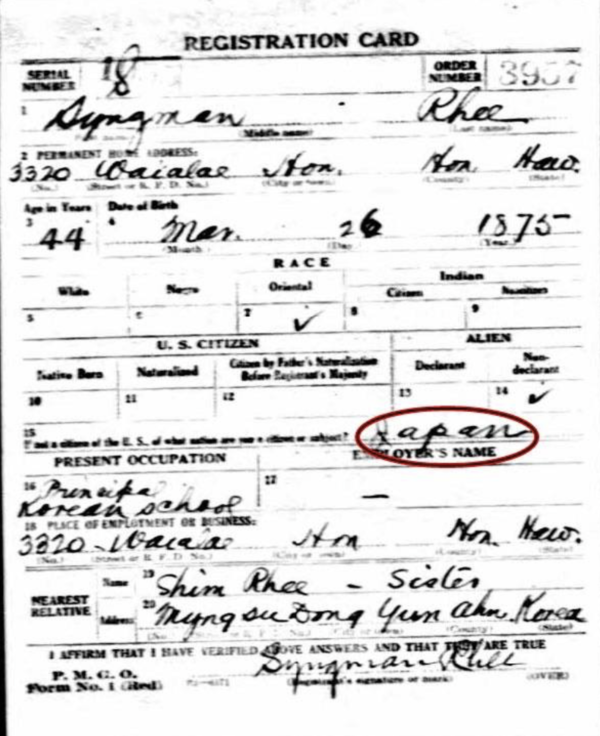 REGISTRATION CARD
SERIAL NUMBER 18 ORDER NUMBER 3957
1 Syngman Rhee
(Middle name) (Last name)
2 PERMANENT HOME ADDRESS:
3320 Waialae Hon. Hon. Haw.
(No.) (Street or R. F. D. No.) (City or town) (County) (State)
Age in Years Date of Birth
3 44 4 Mar. 26 1875
(Month) (Day) (Year)
RACE
White Negro Oriental Indian
Citizen
5 6 7 ✓ 8 9
U. S. CITIZEN ALIEN
Native Born Naturalized Citizen by Father's Naturalization Before Registrant's Majority Declarant Non-declarant
10 11 12 13 14 ✓
15 If not a citizen of the U. S., of what nation are you a citizen or subject? Japan
PRESENT OCCUPATION EMPLOYER'S NAME
16 Principal 17 —
Korean School
18 PLACE OF EMPLOYMENT OR BUSINESS:
3320 Waialae Hon Hon. Haw.
(No.) (Street or R. F. D. No.) (City or town) (County) (State)
NEAREST RELATIVE
Name 19 Shim Rhee - Sister
Address 20 Myng su Dong Yun Ahn, Korea
(No.) (County) (State)
I AFFIRM THAT I HAVE VERIFIED ABOVE ANSWERS AND THAT THEY ARE TRUE
P. M. G. O.
Form No. 1 (Red) Syngman Rhee
(Registrant's signature or mark) (OVER)